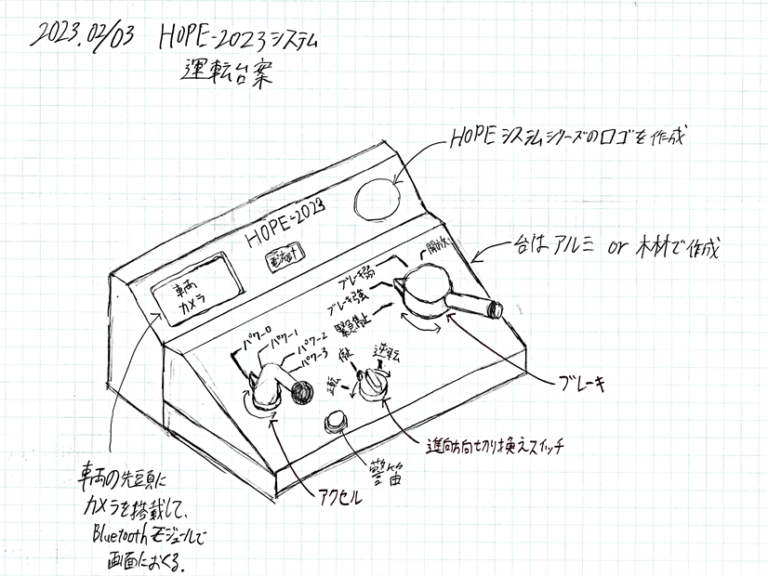 2023.02/03 HOPE-2023システム
運転台案
HOPEシステムシリーズのロゴを作成
HOPE-2023
電流計
台はアルミ or 木材で作成
車両
カメラ
開放
ブレーキ弱
ブレーキ強
緊急停止
パワー0
パワー1
パワー2
パワー3
正転
逆転
ブレーキ
進向方向切り換えスイッチ
警笛
アクセル
車両の先頭に
カメラを搭載して、
Bluetoothモジュールで
画面におくる。